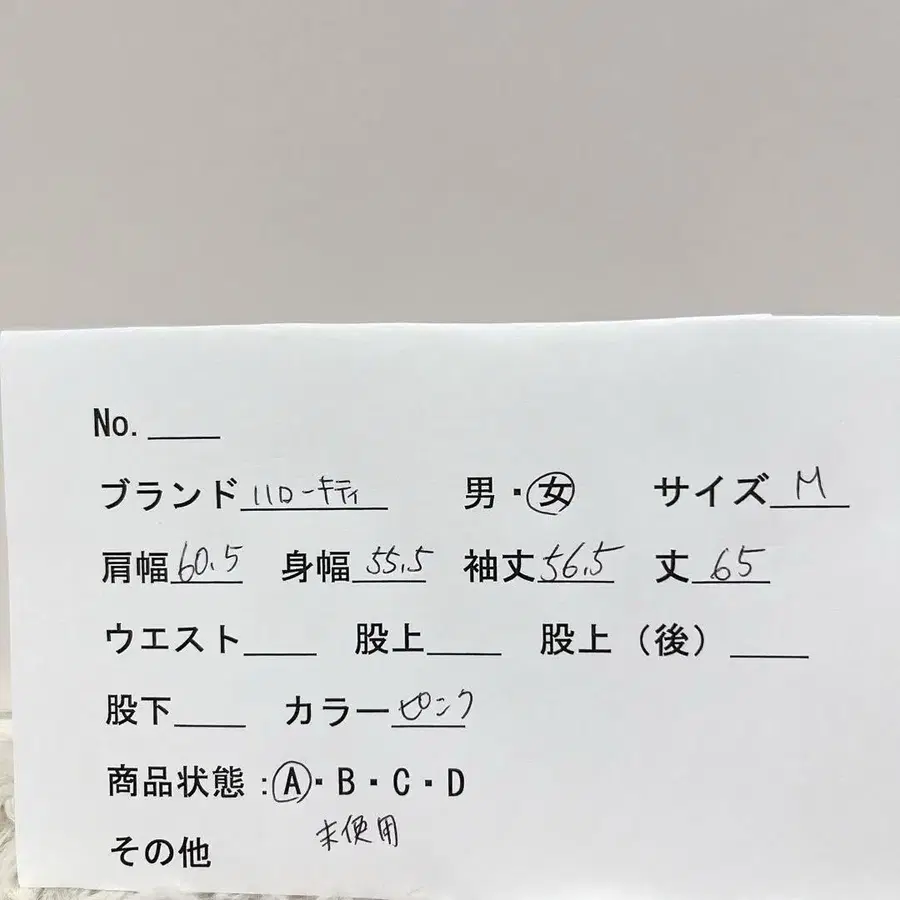 No.
ブランド ハローキティ 男・女 サイズ M
肩幅 60.5 身幅 55.5 袖丈 56.5 丈 65
ウエスト 股上 股上（後）
股下 カラー ピンク
商品状態：A・B・C・D
未使用
その他